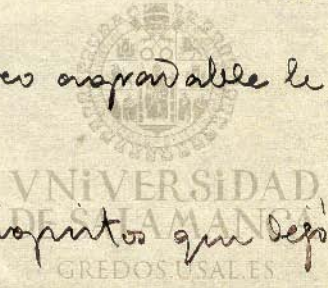 co agradable le
VNiVERSiDAD
DE SALAMANCA
que dejó
GREDOS.USAL.ES